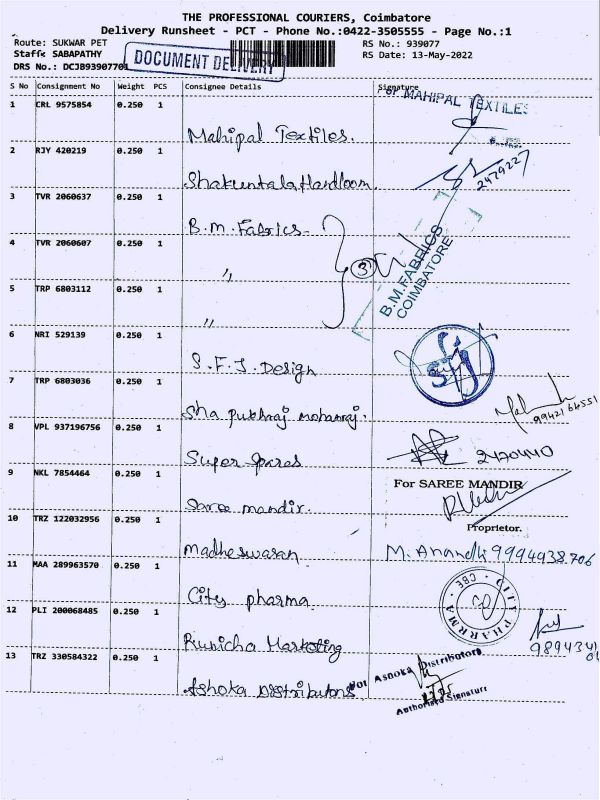 THE PROFESSIONAL COURIERS, Coimbatore
Delivery Runsheet - PCT - Phone No.:0422-3505555 - Page No.:1
Route: SUKWAR PET
RS No.: 939077
Staff: SABAPATHY
DOCUMENT DELIVERY
RS Date: 13-May-2022
DRS No.: DCJB93907701
S No Consignment No Weight PCS Consignee Details Signature
For MAHIPAL TEXTILES
1 CRL 9575854 0.250 1
Mahipal Textiles.
Partner
2 RJY 420219 0.250 1
Shakuntala Handloom
2479227
3 TVR 2060637 0.250 1
B.M. Fabrics
4 TVR 2060607 0.250 1
"
3
B.M.FABRICS
COIMBATORE
5 TRP 6803112 0.250 1
"
6 NRI 529139 0.250 1
S.F.J. Design
SFJ
7 TRP 6803036 0.250 1
Sha pukhraj mohanraj.
9942164551
8 VPL 937196756 0.250 1
Super Spares
2470440
9 NKL 7854464 0.250 1
For SAREE MANDIR
Saree mandir.
Proprietor.
10 TRZ 122032956 0.250 1
Madheswaran
M. Anandh 9994938706
11 MAA 289963570 0.250 1
City pharma.
CITY PHARMA CBE
12 PLI 200068485 0.250 1
Runicha Marketing
9894341
13 TRZ 330584322 0.250 1
For Ashoka Distributors
Ashoka Distributors
Authorised Signature